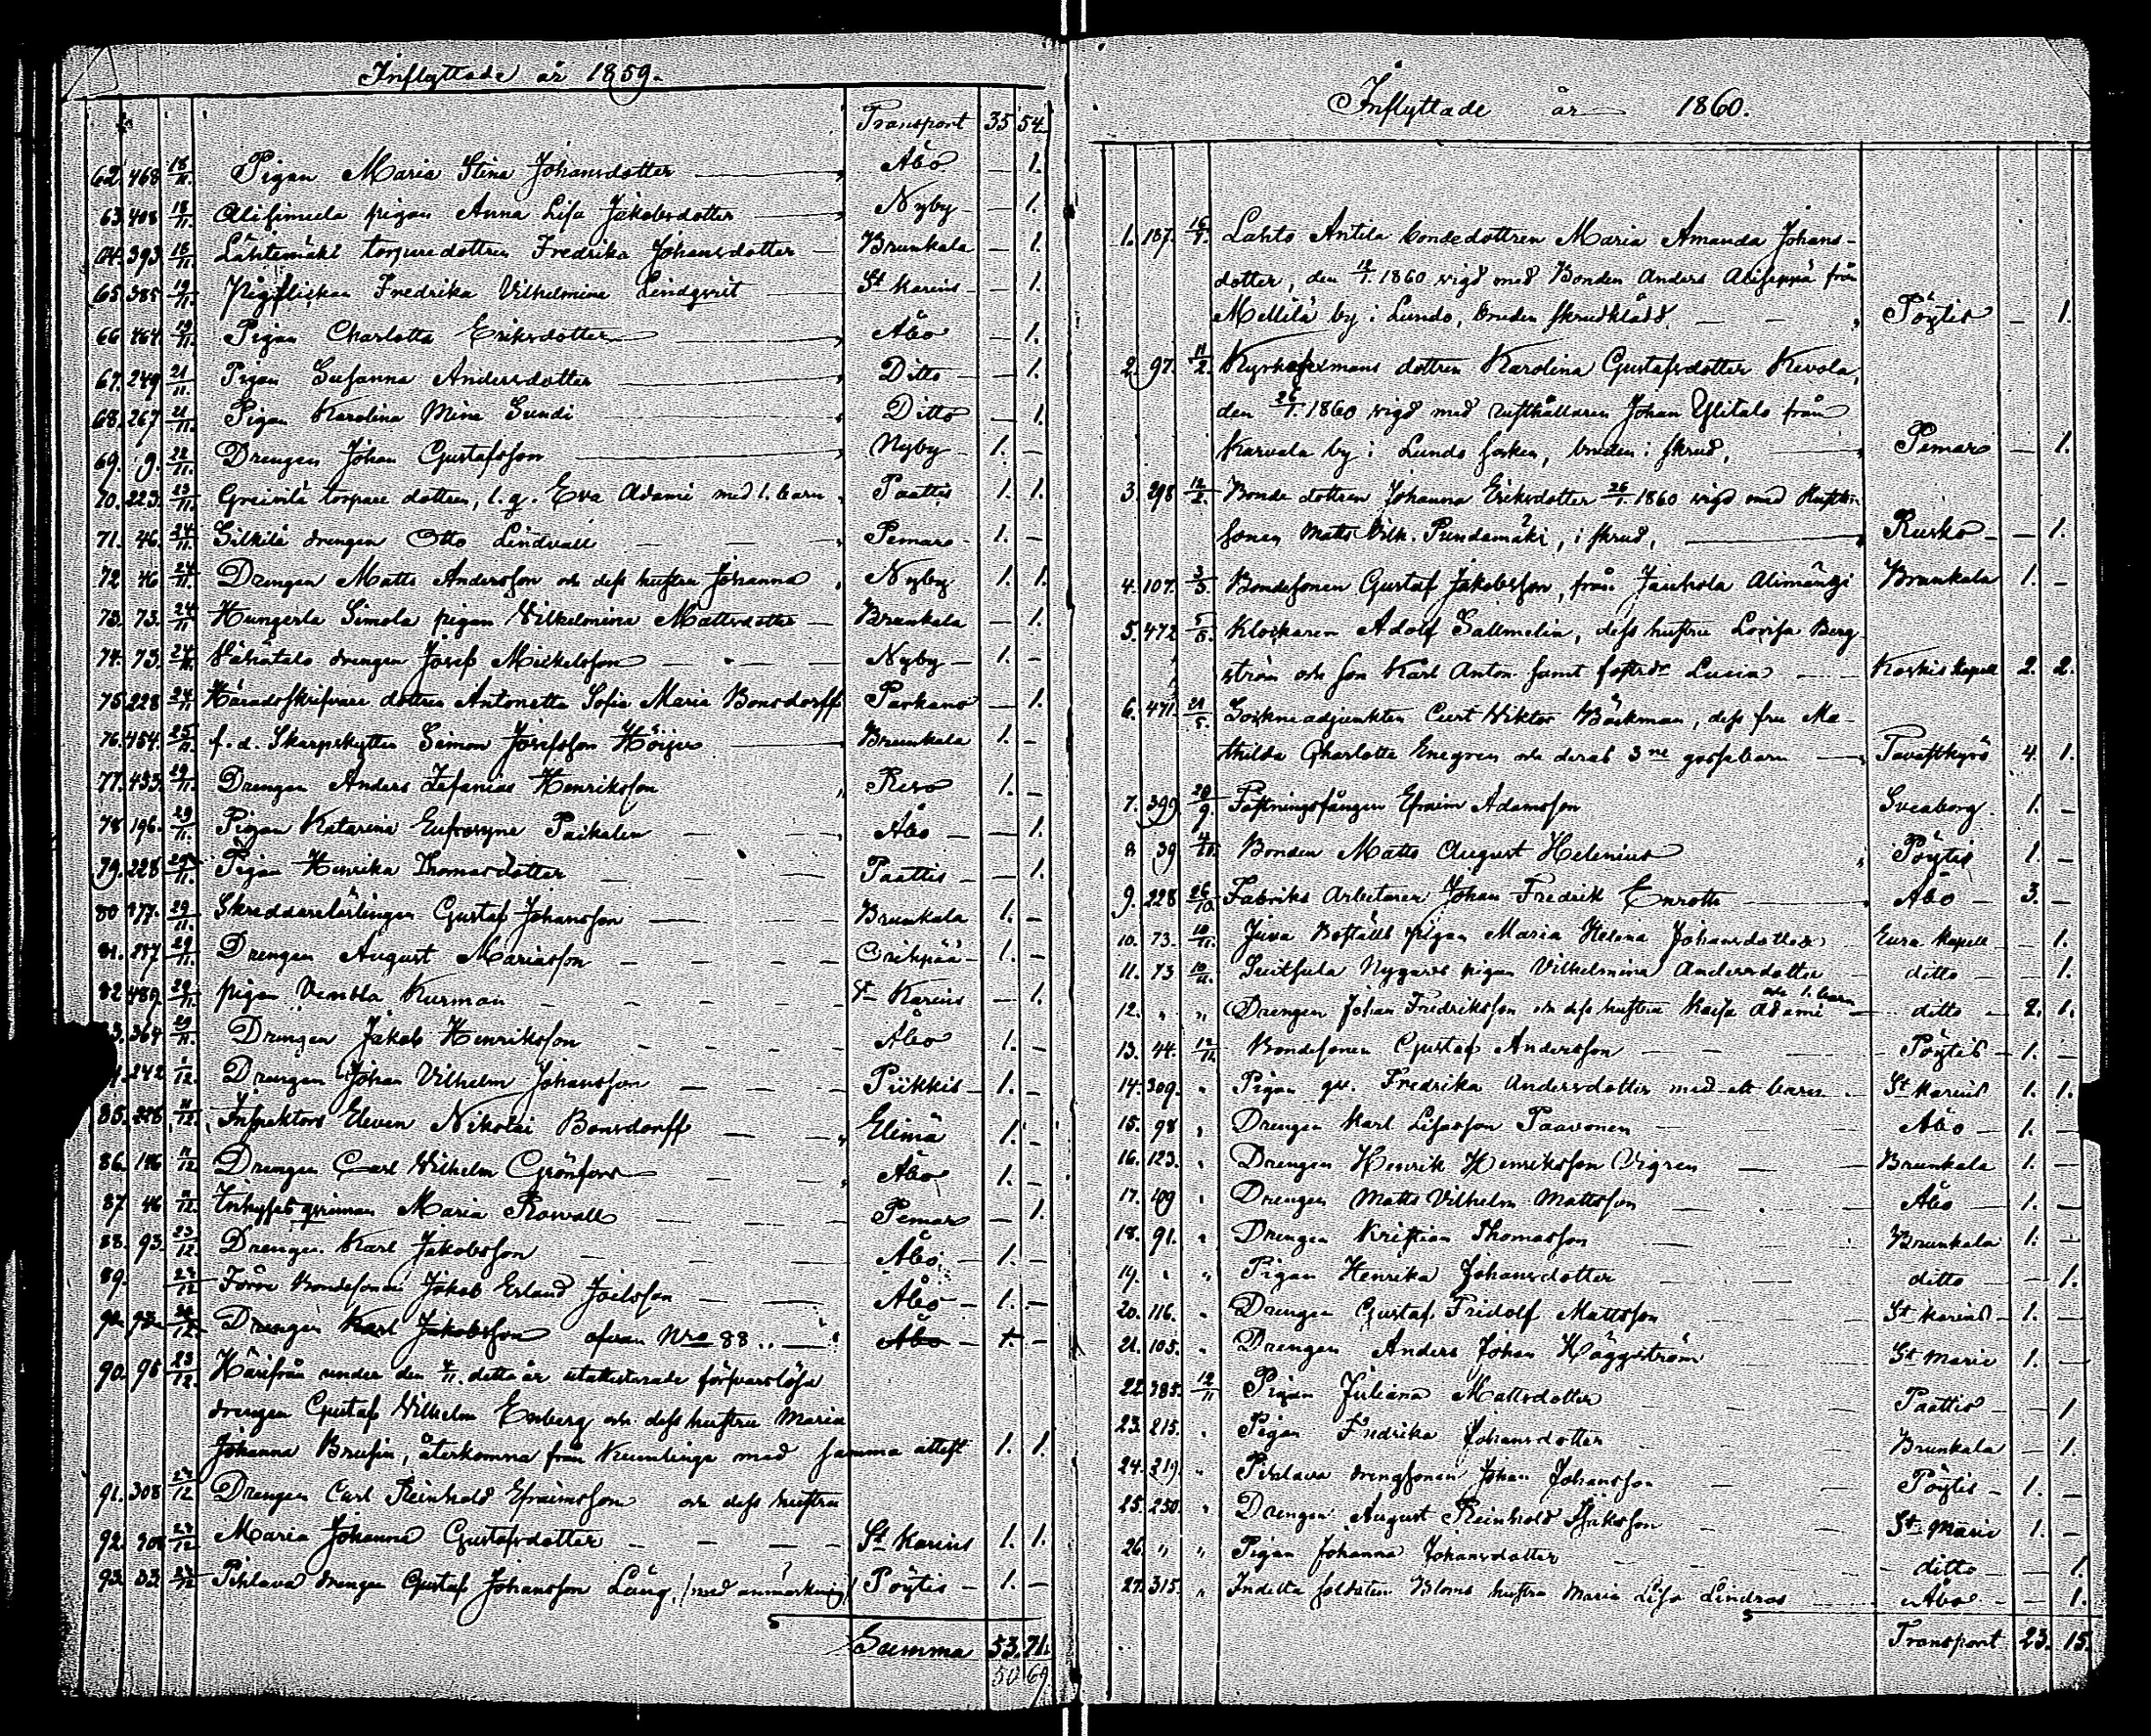 Inflyttade år 1859.
Transport 35 54
62. 468 18/11. Pigan Maria Stina Johansdotter Åbo — 1.
63. 408 18/11. pigan Anna Lisa Jakobsdotter Nyby — 1.
64. 393 18/11. Lähtemäki torparedottren Fredrika Johansdotter Brunkala — 1.
65. 385 19/11. Fredrika Vilhelmina Lindqvist St Karins — 1.
66. 464 19/11. Pigan Charlotta Eriksdotter Åbo — 1.
67. 249 21/11. Pigan Susanna Andersdotter Ditto — 1.
68. 267 21/11. Pigan Karolina Mina Sundi Ditto — 1.
69. 9. 22/11. Drengen Johan Gustafsson Nyby 1. —
70. 223. 23/11. torpare dottren, l. q. Eva Adami med 1. barn Paattis 1. 1.
71. 46. 24/11. Silkilä drengen Otto Lindvall Pemars 1. —
72. 46 24/11. Drengen Matts Andersson och dess hustru Johanna Nyby 1. 1.
73. 73. 24/11 Hungerla Simola pigan Wilhelmina Mattsdotter Brunkala — 1.
74. 73. 24/11. Vähätalo drengen Josef Mickelsson Nyby 1. —
75 228 24/11 Häradsskrifvare dottren Antonetta Sofia Maria Bonsdorff Parkano — 1.
76. 454. 25/11 f. d. Skarpskytten Simon Josefsson Höijer Brunkala 1. —
77. 433. 29/11. Drengen Anders Zefanias Henriksson Reso 1. —
78 196. 29/11. Pigan Katarina Eufrosyne Paikalen Åbo — 1.
79. 228 29/11. Pigan Henrika Thomasdotter Paattis — 1.
80 177. 29/11. Skreddarelärlingen Gustaf Johansson Brunkala 1. —
81. 287 29/11. Drengen August Mariasson Orihpää 1. —
82. 489 29/11. pigan Vendla Kurman St Karins — 1.
364 29/11. Drengen Jakob Henriksson Åbo 1. —
242 1/12. Drengen Johan Vilhelm Johansson Piikkis 1. —
85. 228 11/12. Inspektors Eleven Nikolai Bonsdorff Elimä 1. —
86. 186 11/12 Drengen Carl Wilhelm Grönfors Åbo 1. —
87. 46 11/12. qvinnan Maria Rowall Pemar — 1.
88. 93. 23/12. Drengen Karl Jakobsson Åbo 1. —
89. 23/12 Jööre Bondesonen Jakob Erland Joelsson Åbo 1. —
Drengen Karl Jakobsson ofvan Nro 88 Åbo 1 —
90. 98 23/12. Härifrån under den 4/11. detta år utattesterade försvarslösa
drengen Gustaf Wilhelm Enberg och dess hustru Maria
Johanna Brusin, återkomna från Kumlinge med samma attest 1. 1.
91. 308 27/12 Drengen Carl Reinhold Efraimsson och dess hustru
92. 308 27/12 Maria Johanna Gustafsdotter St Karins 1. 1.
93. 83. Pihlava drengen Gustaf Johansson Lång, (med anmärkning) Pöytis 1. —
Summa 53. 71.
50 69
Inflyttade år 1860.
1. 187. 16/1. Lahto Antila bondedottren Maria Amanda Johans-
dotter, den 1860 vigd med Bonden Anders från
Mellilä by i Lundo, bruden skrudklädd. Pöytis — 1.
2. 97. 11/2. Kyrkovexmans dottren Karolina Gustafsdotter Kevola,
den 26/1. 1860 vigd med rusthållaren Johan Ylitalo från
Karvala by i Lundo socken, bruden i skrud, Pemar — 1.
3. 298 12/2. Bonde dottren Johanna Eriksdotter 26/1. 1860 vigd med
sonen Matts Vilh. Pundamäki, i skrud, Rusko — 1.
4. 107. 3/3. Bondesonen Gustaf Jakobsson, från Jauhola Alimängi Brunkala 1. —
5. 472 5/5. Klockaren Adolf Sallmelin, dess hustru Lovisa Berg-
ström och son Karl Anton samt fosterdr Lucia Koskis kapell 2. 2.
6. 471 21/5. Sockneadjunkten Curt Viktor Bäckman, dess fru Ma-
thilda Charlotta Enegren och deras 3ne gossebarn Tavastkyrö 4. 1.
7. 399 20/9. Fästningsfången Efraim Adamsson Sveaborg 1. —
8 39 4/10. Bonden Matts August Helenius Pöytis 1. —
9. 228 26/10 Fabriks Arbetaren Johan Fredrik Enroth Åbo 3. —
10. 73. 10/11. Juva Boställs pigan Maria Helena Johansdotter Eura kapell — 1.
11. 73 10/11. Nygårds pigan Vilhelmina Andersdotter ditto — 1.
12. " " Drengen Johan Fredriksson och dess hustru Kaisa Adami och 1. barn ditto 2. 1.
13. 44. 12/11. Bondesonen Gustaf Andersson Pöytis 1. —
14. 309. " Pigan qv. Fredrika Andersdotter med ett barn St Karins 1. 1.
15. 98 " Drengen Karl Lisasson Paavonen Åbo 1. —
16. 123. " Drengen Henrik Henriksson Vigren Brunkala 1. —
17. 109 " Drengen Matts Vilhelm Mattsson Åbo 1. —
18. 91. " Drengen Kristian Thomasson Brunkala 1. —
19. " " Pigan Henrika Johansdotter ditto — 1.
20. 116. " Drengen Gustaf Fridolf Mattsson St Karins 1. —
21. 105. " Drengen Anders Johan Häggström St Marie 1. —
22 385. 12/11 Pigan Juliana Mattsdotter Paattis — 1
23. 215. " Pigan Fredrika Johansdotter Brunkala — 1.
24. 219. " Pihlava drengsonen Johan Johansson Pöytis 1. —
25. 250. " Drengen August Reinhold Isaksson St Marie 1. —
26. " " Pigan Johanna Johansdotter ditto — 1.
27. 315. " Indelta soldaten Bloms hustru Maria Lisa Lindros Åbo — 1.
Transport 23. 15.